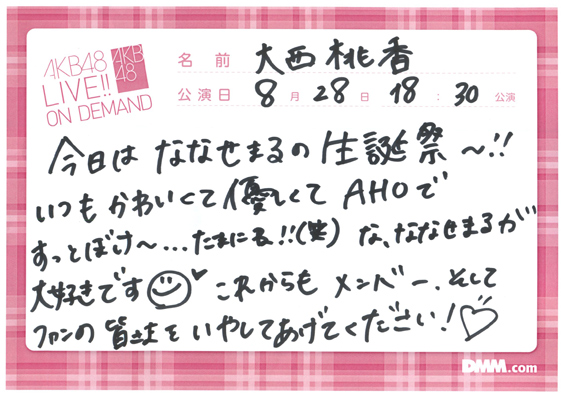 AKB48
LIVE!!
ON DEMAND
AKB
48
名前 大西桃香
公演日 8月28日 18:30公演
今日は ななせまるの 生誕祭 〜!!
いつも かわいくて 優しくて AHOで
すっとぼけ〜...たまにね!!(笑) な、ななせまるが
大好きです これからも メンバー、そして
ファンの 皆さまを いやしてあげてください!
DMM.com